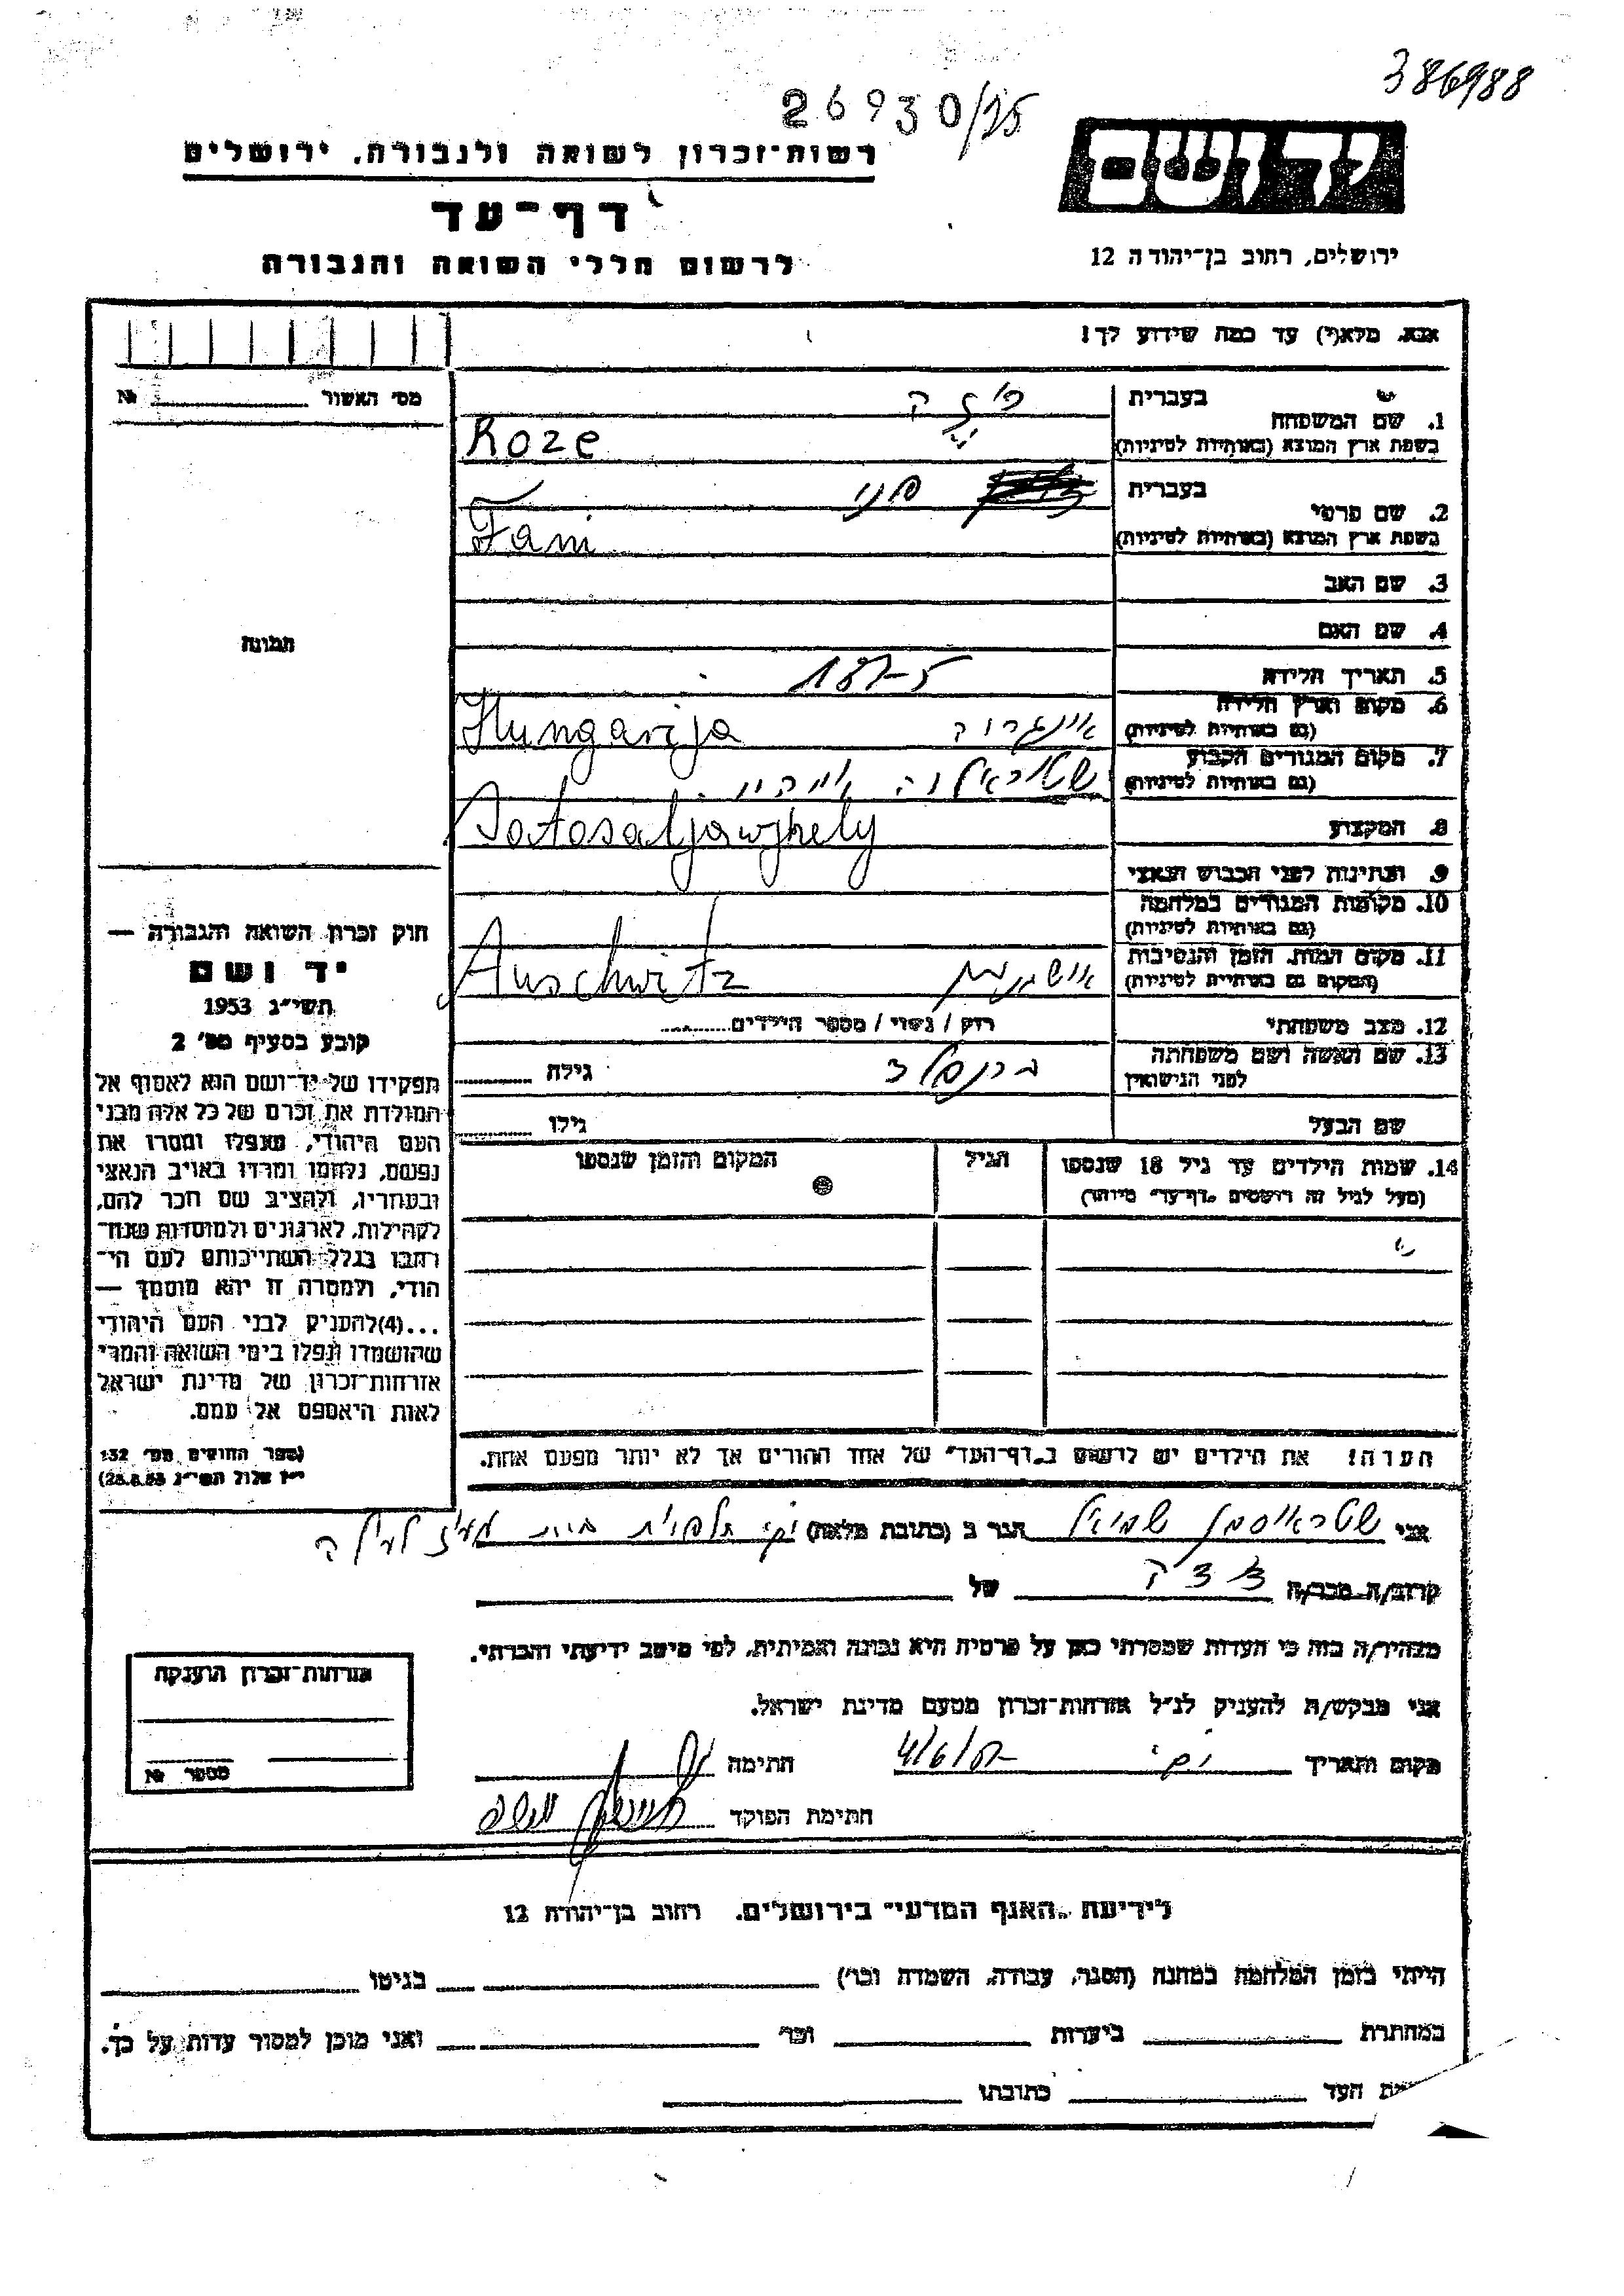 386988
26930/25
רשות־זכרון לשואה ולגבורה, ירושלים
יד ושם
דף־עד
ירושלים, רחוב בן־יהודה 12
לרשום חללי השואה והגבורה
אנא, מלא(י) עד כמה שידוע לך!
מס׳ האשור № 
1. שם המשפחה
בעברית
בשפת ארץ המוצא (באותיות לטיניות)
Roze
2. שם פרטי
בעברית פני
בשפת ארץ המוצא (באותיות לטיניות)
Fani
3. שם האב
4. שם האם
תמונה
5. תאריך הלידה 187-5
6. מקום וארץ הלידה
(גם באותיות לטיניות)
Hungarija
7. מקום המגורים הקבוע
(גם באותיות לטיניות)
8. המקצוע
9. הנתינות לפני הכבוש הנאצי
10. מקומות המגורים במלחמה
(גם באותיות לטיניות)
11. מקום המות, הזמן והנסיבות
(המקום גם באותיות לטיניות)
אושוויץ Auschwitz
12. מצב משפחתי רוק / נשוי / מספר הילדים
13. שם האשה ושם משפחתה
לפני הנישואין
גילה
שם הבעל גילו
14. שמות הילדים עד גיל 18 שנספו
(מעל לגיל זה רושמים "דף־עד" מיוחד)
הגיל
המקום והזמן שנספו
הערה! את הילדים יש לרשום ב"דף־העד" של אחד ההורים אך לא יותר מפעם אחת.
חוק זכרון השואה והגבורה —
יד ושם
תשי״ג 1953
קובע בסעיף מס׳ 2
תפקידו של יד־ושם הוא לאסוף אל
המולדת את זכרם של כל אלה מבני
העם היהודי, שנפלו ומסרו את
נפשם, נלחמו ומרדו באויב הנאצי
ובעוזריו, ולהציב שם וזכר להם,
לקהילות, לארגונים ולמוסדות שנח־
רבו בגלל השתייכותם לעם הי־
הודי, ולמטרה זו יהא מוסמך —
...(4) להעניק לבני העם היהודי
שהושמדו ונפלו בימי השואה והמרי
אזרחות־זכרון של מדינת ישראל
לאות היאספם אל עמם.
(ספר החוקים מס׳ 132
י״ז אלול תשי״ג 28.8.53)
אני שטראוסמן שמואל הגר ב (כתובת מלאה)
קרוב/ה מכר/ה של
מצהיר/ה בזה כי העדות שמסרתי כאן על פרטיה היא נכונה ואמיתית, לפי מיטב ידיעתי והכרתי.
אני מבקש/ת להעניק לנ״ל אזרחות־זכרון מטעם מדינת ישראל.
מקום ותאריך חתימה
חתימת הפוקד
אזרחות־זכרון הוענקה
מספר №
לידיעת "האגף המדעי" בירושלים, רחוב בן־יהודה 12
הייתי בזמן המלחמה במחנה (הסגר, עבודה, השמדה וכו׳) בגיטו
במחתרת ביערות וכו׳ ואני מוכן למסור עדות על כך.
העד כתובתו